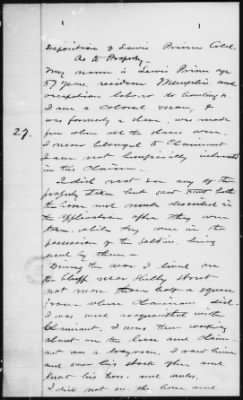 1
Deposition of Lewis Prime Cold.
As to Property.
My name is Lewis Prime age
57 years, residence Memphis, and
occupation labour &
I am a colored man, &
was formerly a slave, was made
free when all the slaves were.
27.
I never belonged to Claimant
I am not beneficially interested
in this claim
I did not see any of the
property taken but saw both
the horse and mule described in
the application after they were
taken, while they were in the
possession of the soldiers, being
used by them —
During the war I lived on
the bluff near Street
not more than half a square
from where Claimant did.
I was well acquainted with
Claimant. I was then working
about on the levee and Claim-
ant was a wagoner. I saw him
and saw his stock often and
knew his horse and mules.
I did not see the horse and